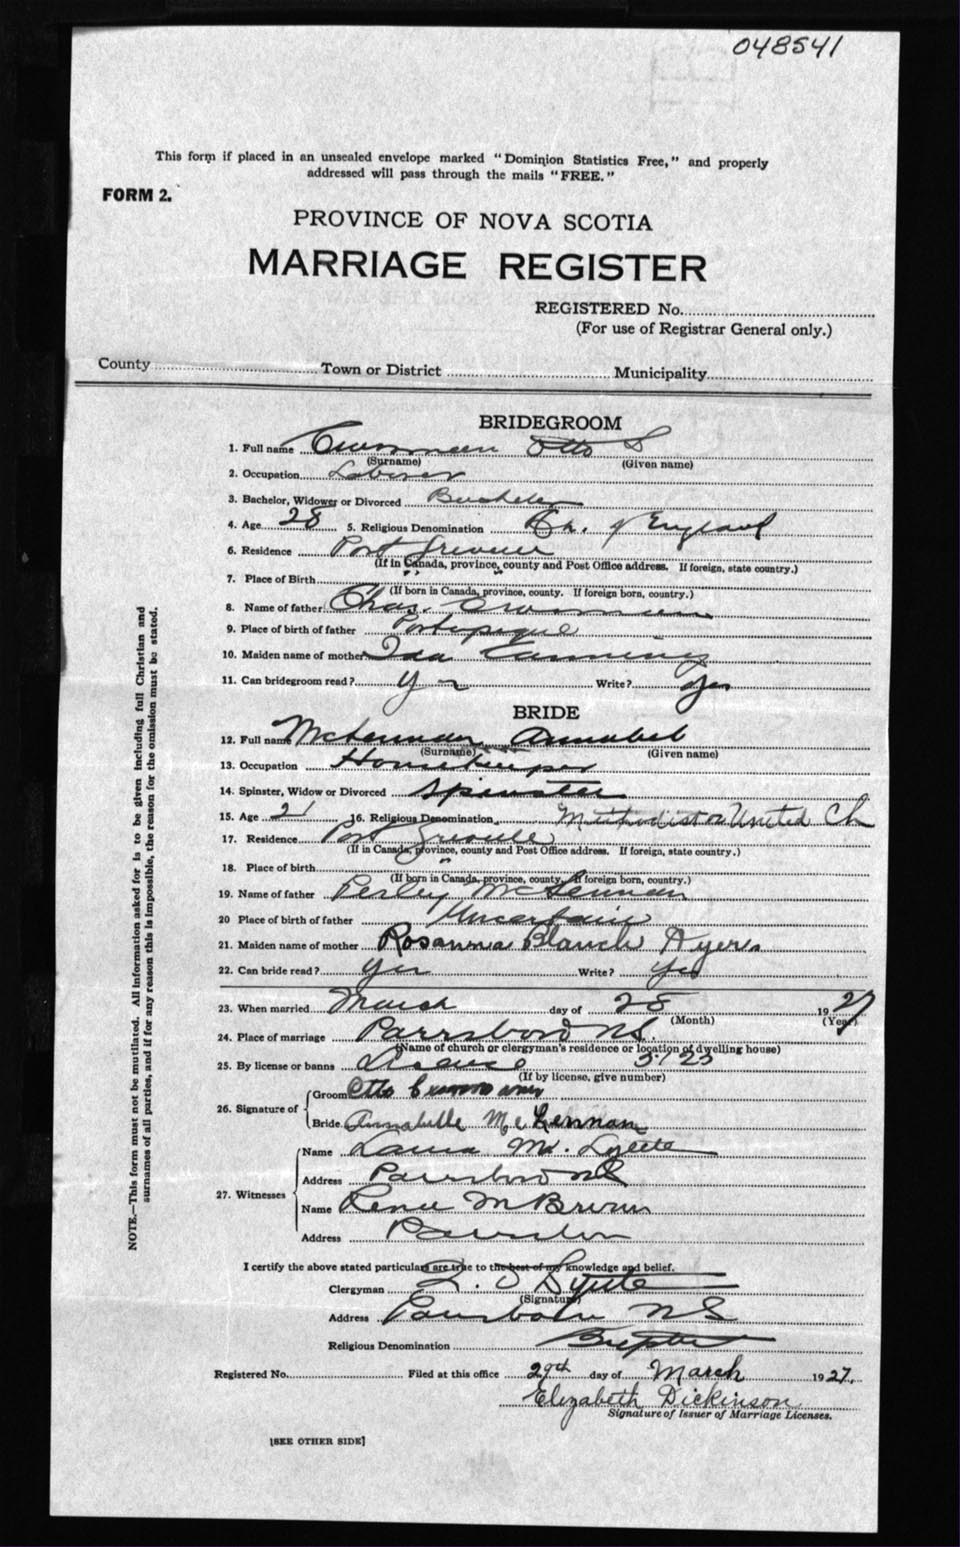 048541
This form if placed in an unsealed envelope marked "Dominion Statistics Free," and properly
addressed will pass through the mails "FREE."
FORM 2.
PROVINCE OF NOVA SCOTIA
MARRIAGE REGISTER
REGISTERED No.
(For use of Registrar General only.)
County Town or District Municipality
BRIDEGROOM
1. Full name Otto S
(Surname) (Given name)
2. Occupation Laborer
3. Bachelor, Widower or Divorced Bachelor
4. Age 28 5. Religious Denomination Ch. of England
6. Residence Port Greville
(If in Canada, province, county and Post Office address. If foreign, state country.)
7. Place of Birth " "
(If born in Canada, province, county. If foreign born, country.)
8. Name of father Chas.
9. Place of birth of father Portapique
10. Maiden name of mother Ida Canning
11. Can bridegroom read? Yes Write? Yes
BRIDE
12. Full name McLennan Annabel
(Surname) (Given name)
13. Occupation Housekeeper
14. Spinster, Widow or Divorced Spinster
15. Age 21 16. Religious Denomination Methodist or United Ch
17. Residence Port Greville
(If in Canada, province, county and Post Office address. If foreign, state country.)
18. Place of birth "
(If born in Canada, province, county. If foreign born, country.)
19. Name of father Perley McLennan
20 Place of birth of father Uncertain
21. Maiden name of mother Rosanna Blanch Ayers
22. Can bride read? Yes Write? Yes
23. When married March day of 28 1927
(Month) (Year)
24. Place of marriage Parrsboro NS.
(Name of church or clergyman's residence or location of dwelling house)
25. By license or banns License
(If by license, give number)
26. Signature of
Groom Otto
Bride Annabelle McLennan
27. Witnesses
Name Laura M.
Address Parrsboro NS
Name Rena M Brown
Address Parrsboro
I certify the above stated particulars are true to the best of my knowledge and belief.
Clergyman
(Signature)
Address Parrsboro NS
Religious Denomination Baptist
Registered No. Filed at this office 29th day of March 1927.
Elizabeth Dickinson
Signature of Issuer of Marriage Licenses.
[SEE OTHER SIDE]
NOTE.—This form must not be mutilated. All information asked for is to be given including full Christian and
surnames of all parties, and if for any reason this is impossible, the reason for the omission must be stated.